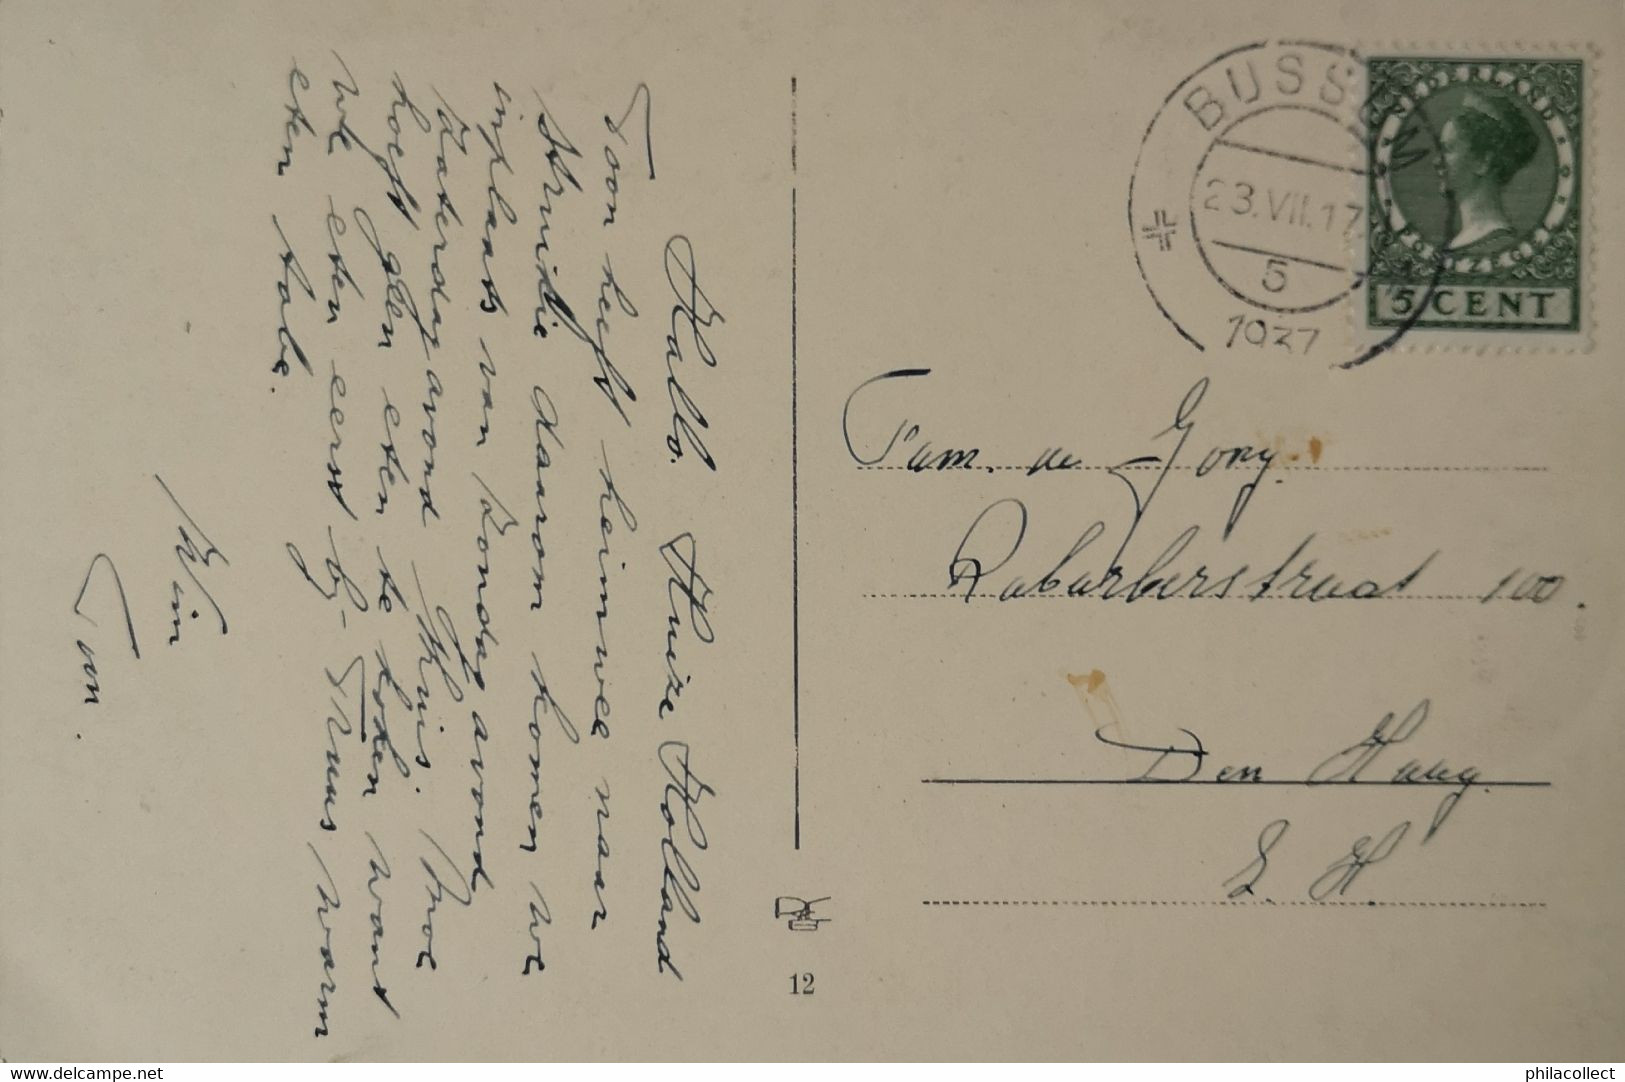 Hallo. Huize Holland
Toon heeft heimwee naar
Struisie daarom komen we
inplaats van Zondag avond
Zaterdag avond thuis. Moe
hoeft geen eten te koken want
we eten eerst by Truus warm
eten tabe.
Wim
Toon.
BUSSUM
23.VII.17
5
1937
NEDERLAND
POSTZEGEL
5 CENT
Fam. de Jong.
Rabarberstraat 100.
Den Haag.
Z. H.
12
delcampe.net
philacollect